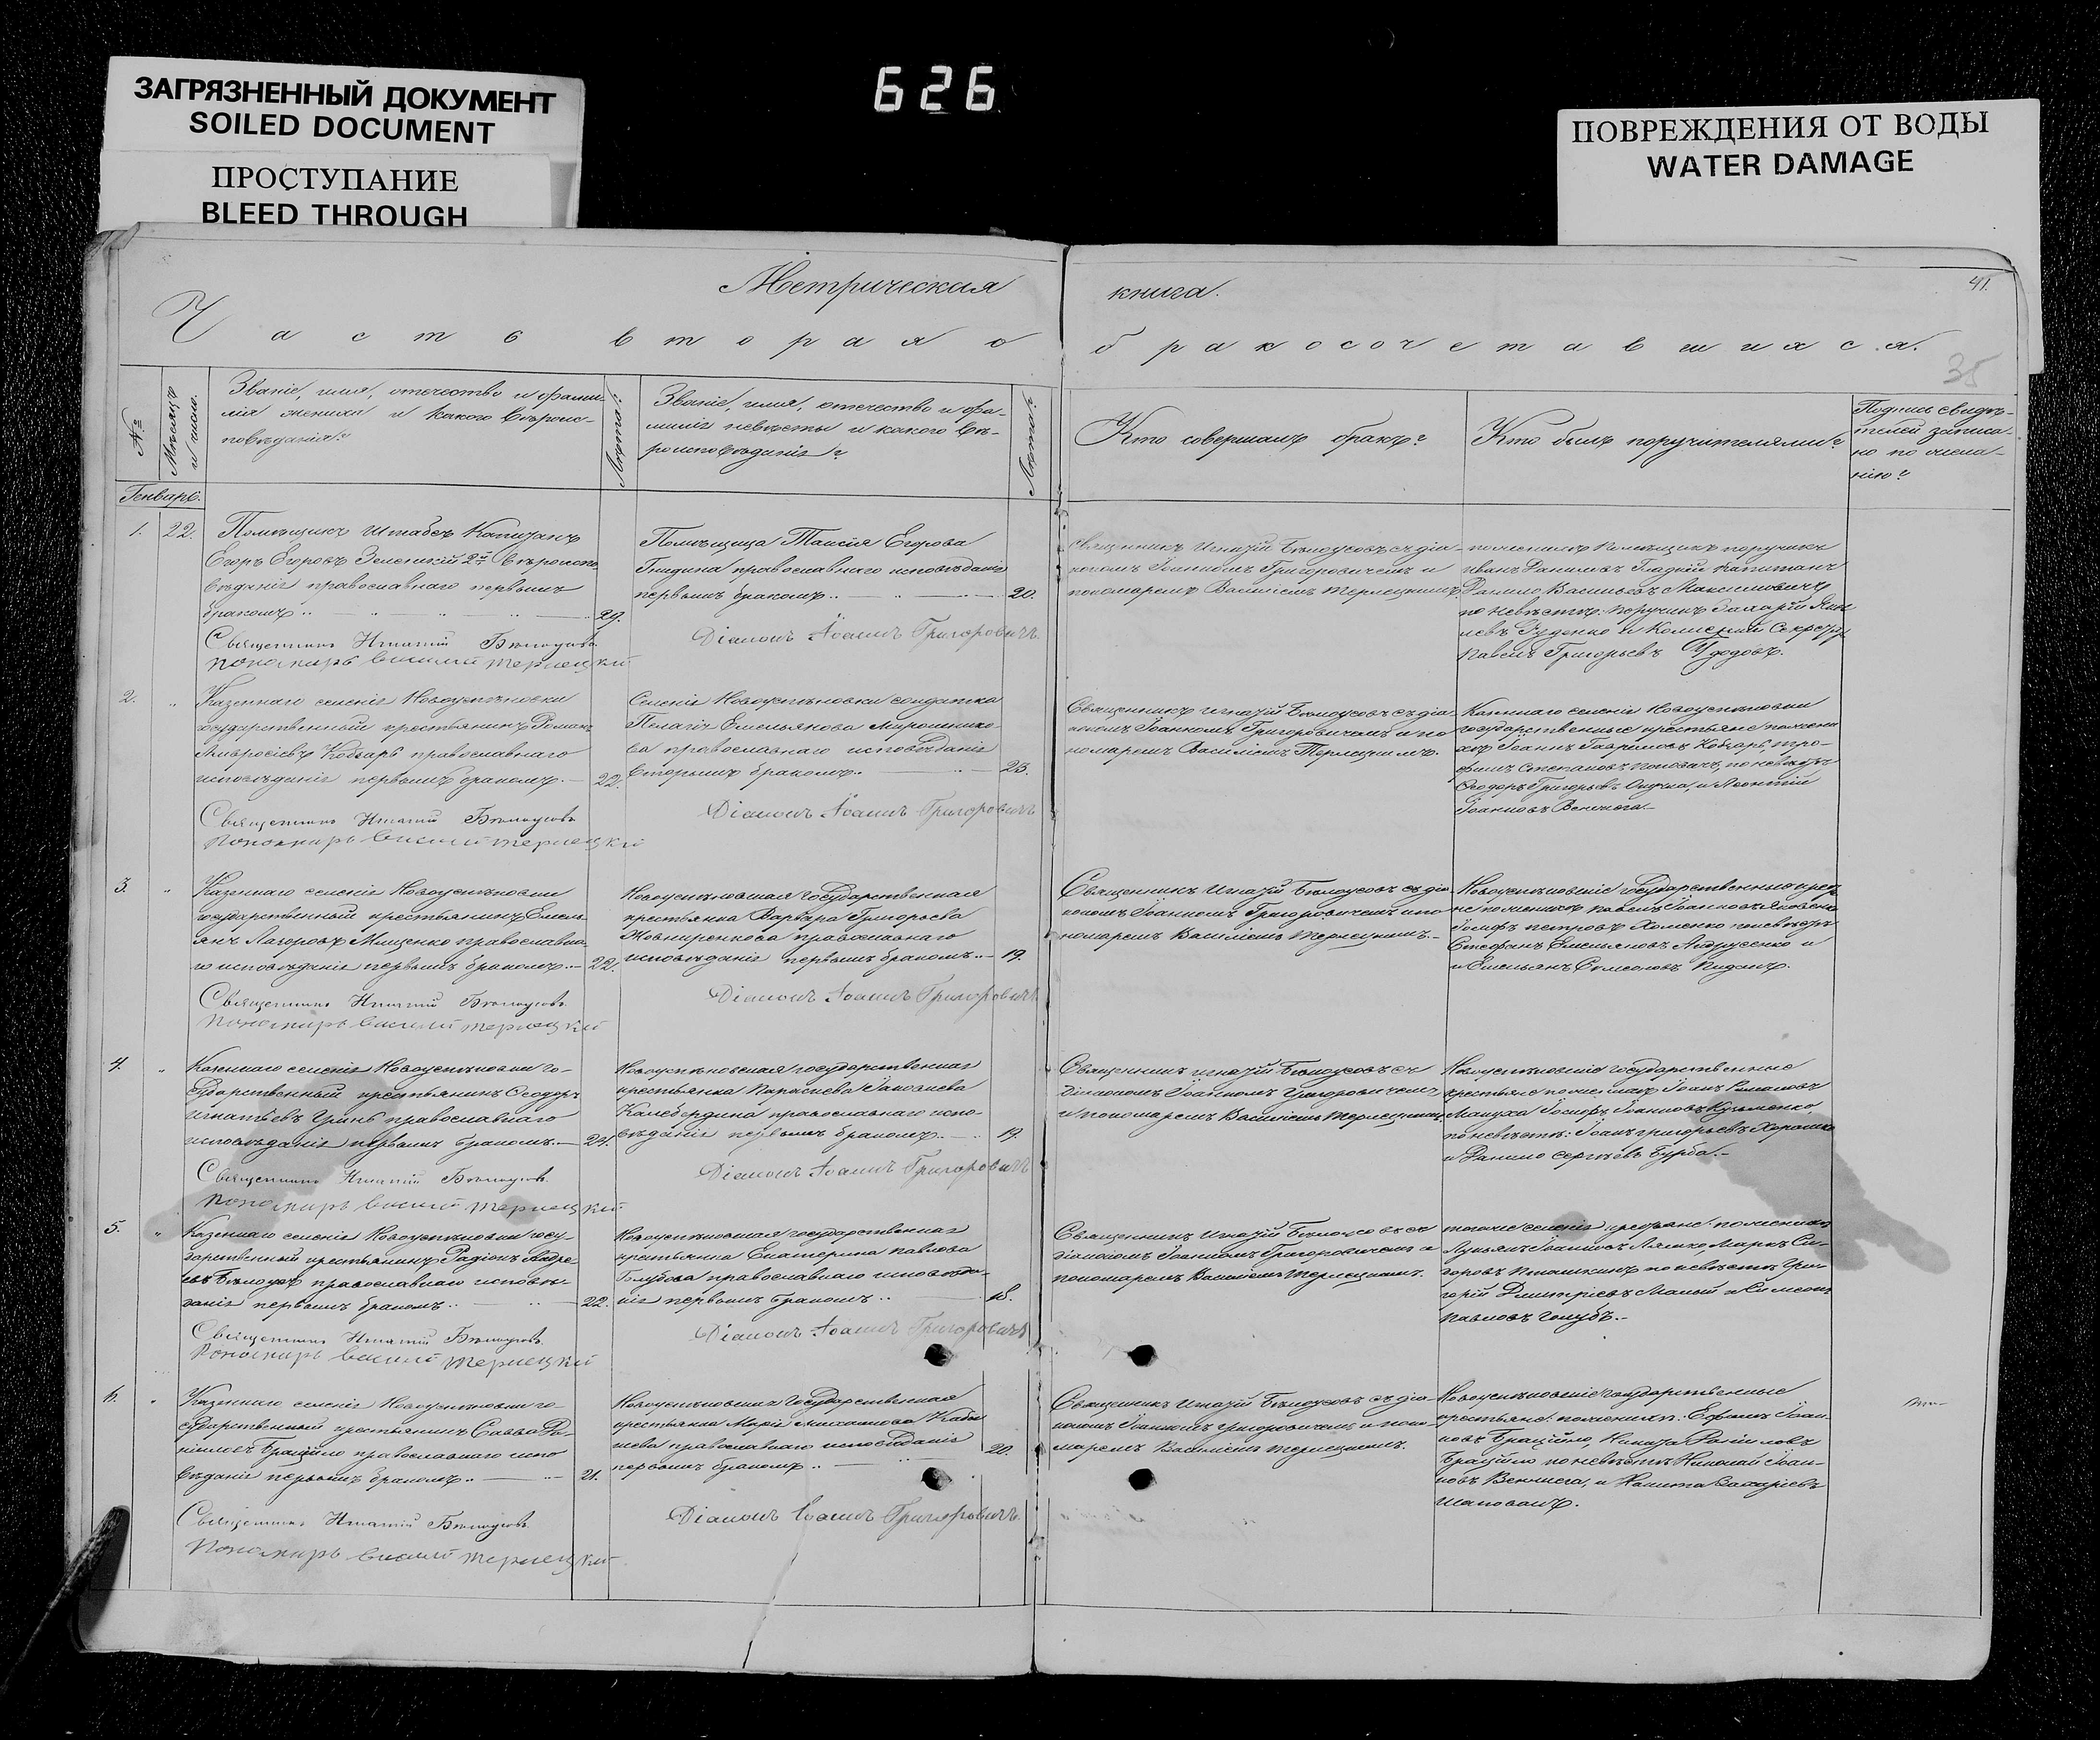 ЗАГРЯЗНЕННЫЙ ДОКУМЕНТ
SOILED DOCUMENT
ПРОСТУПАНИЕ
BLEED THROUGH
626
ПОВРЕЖДЕНИЯ ОТ ВОДЫ
WATER DAMAGE
Метрическая книга.
41.
Часть вторая о бракосочетавшихся.
35
№
Мѣсяцъ и число.
Званіе, имя, отечество и фами-
лія жениха и какого вѣроис-
повѣданія?
Лѣта?
Званіе, имя, отечество и фа-
миліи невѣсты и какого вѣ-
роисповѣданія?
Лѣта?
Кто совершалъ бракъ?
Кто былъ поручителями?
Подпись свидѣ-
телей записа-
но по жела-
нію?
Генварь.
1. 22.
Помѣщикъ Штабсъ Капитанъ
Егоръ Егоровъ Зеленскій 2й вѣроиспо-
вѣданія православнаго первымъ
бракомъ 29.
Священникъ Игнатій Бѣлоусовъ
Пономарь Василий Терлецкий
Помѣщица Таисія Егорова
Гнидина православнаго исповѣданія
первымъ бракомъ 20.
Діаконъ Іоаннъ Григоровичъ
Священникъ Игнатій Бѣлоусовъ съ діа-
кономъ Іоанномъ Григоровичемъ и
пономаремъ Василіемъ Терлецкимъ
по женихѣ Помѣщикъ поручикъ
Иванъ Даниловъ Гладкій Капитанъ
Васильевъ Максимовичъ
по невѣстѣ: поручикъ Захарій
Гуденко и
Павелъ Григорьевъ Удодовъ.
2. "
Казеннаго селенія Новоуспѣновки
государственный крестьянинъ Романъ
Амвросіевъ Кобзарь православнаго
исповѣданія первымъ бракомъ.— 22.
Священникъ Игнатій Бѣлоусовъ
Пономарь Василий Терлецкий
Селенія Новоуспѣновки солдатка
Пелагія Емельянова
православнаго исповѣданія
вторымъ бракомъ 23.
Діаконъ Іоаннъ Григоровичъ
Священникъ Игнатій Бѣлоусовъ съ діа-
кономъ Іоанномъ Григоровичемъ и по-
номаремъ Василіемъ Терлецкимъ.
Казеннаго селенія Новоуспѣновки
государственные крестьяне по жени-
хѣ Іоаннъ Гавриловъ Кобзарь, Тро-
фимъ Степановъ по невѣстѣ
Ѳеодоръ Григорьевъ и Леонтій
Іоанновъ
3. "
Казеннаго селенія Новоуспѣновки
государственный крестьянинъ Емель-
янъ Мищенко православна-
го исповѣданія первымъ бракомъ.— 22.
Священникъ Игнатій Бѣлоусовъ
Пономарь Василий Терлецкий
Новоуспѣновская государственная
крестьянка Варвара Григорьева
Жовниренкова православнаго
исповѣданія первымъ бракомъ.. 19.
Діаконъ Іоаннъ Григоровичъ
Священникъ Игнатій Бѣлоусовъ съ діа-
кономъ Іоанномъ Григоровичемъ и по-
номаремъ Василіемъ Терлецкимъ.—
Новоуспѣновскіе государственные
по женихѣ Павелъ Іоанновъ
Іосифъ Петровъ Хоменко по невѣстѣ
Стефанъ Емельяновъ Андрусенко и
Емельянъ Симеоновъ
4. "
Казеннаго селенія Новоуспѣновки го-
сударственный крестьянинъ Ѳеодоръ
Игнатьевъ Гринь православнаго
исповѣданія первымъ бракомъ.— 24.
Священникъ Игнатій Бѣлоусовъ
Пономарь Василий Терлецкий
Новоуспѣновская государственная
крестьянка Параскева
Калебердина православнаго испо-
вѣданія первымъ бракомъ.— 19.
Діаконъ Іоаннъ Григоровичъ
Священникъ Игнатій Бѣлоусовъ съ
діакономъ Іоанномъ Григоровичемъ
и пономаремъ Василіемъ Терлецкимъ.
Новоуспѣновскіе государственные
крестьяне по женихѣ Іоаннъ Романовъ
Іосифъ Іоанновъ Кузьменко,
по невѣстѣ: Іоаннъ Григорьевъ Хорошко
и Данило Сергѣевъ Бурба.—
5. "
Казеннаго селенія Новоуспѣновки госу-
дарственный крестьянинъ Радіонъ Андре-
евъ Бѣлоусъ православнаго исповѣ-
данія первымъ бракомъ.. 22.
Священникъ Игнатій Бѣлоусовъ
Пономарь Василий Терлецкий
Новоуспѣновская государственная
крестьянка Екатерина Павлова
Голубова православнаго исповѣда-
нія первымъ бракомъ.. 18.
Діаконъ Іоаннъ Григоровичъ
Священникъ Игнатій Бѣлоусовъ съ
діакономъ Іоанномъ Григоровичемъ и
пономаремъ Василіемъ Терлецкимъ.
того же селенія по женихѣ
Лукьянъ Іоанновъ Ляшко, Марко
по невѣстѣ Гри-
горій Дмитріевъ Малый и Симеонъ
Павловъ Голубъ.—
6. "
Казеннаго селенія Новоуспѣновки го-
сударственный крестьянинъ Савва Да-
ніиловъ Брацыло православнаго испо-
вѣданія первымъ бракомъ.. 21.
Священникъ Игнатій Бѣлоусовъ
Пономарь Василий Терлецкий
Новоуспѣновская государственная
крестьянка Марія Михаилова
православнаго исповѣданія
первымъ бракомъ.. 20.
Діаконъ Іоаннъ Григоровичъ
Священникъ Игнатій Бѣлоусовъ съ діа-
кономъ Іоанномъ Григоровичемъ и поно-
маремъ Василіемъ Терлецкимъ.
Новоуспѣновскіе государственные
крестьяне: по женихѣ: Ефимъ Іоан-
новъ Брацыло, Никита Даніиловъ
Брацыло по невѣстѣ Николай Іоан-
новъ и Никита Захаріевъ
Шаповалъ.